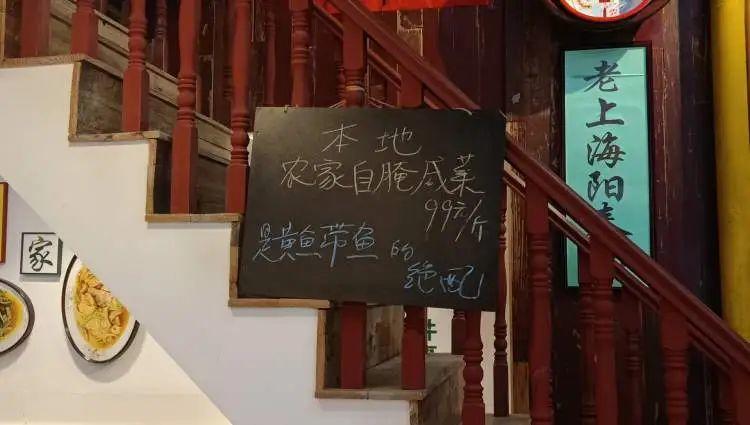 本地
农家自腌咸菜
99元/斤
是黄魚带鱼的
绝配
老上海阳春
家